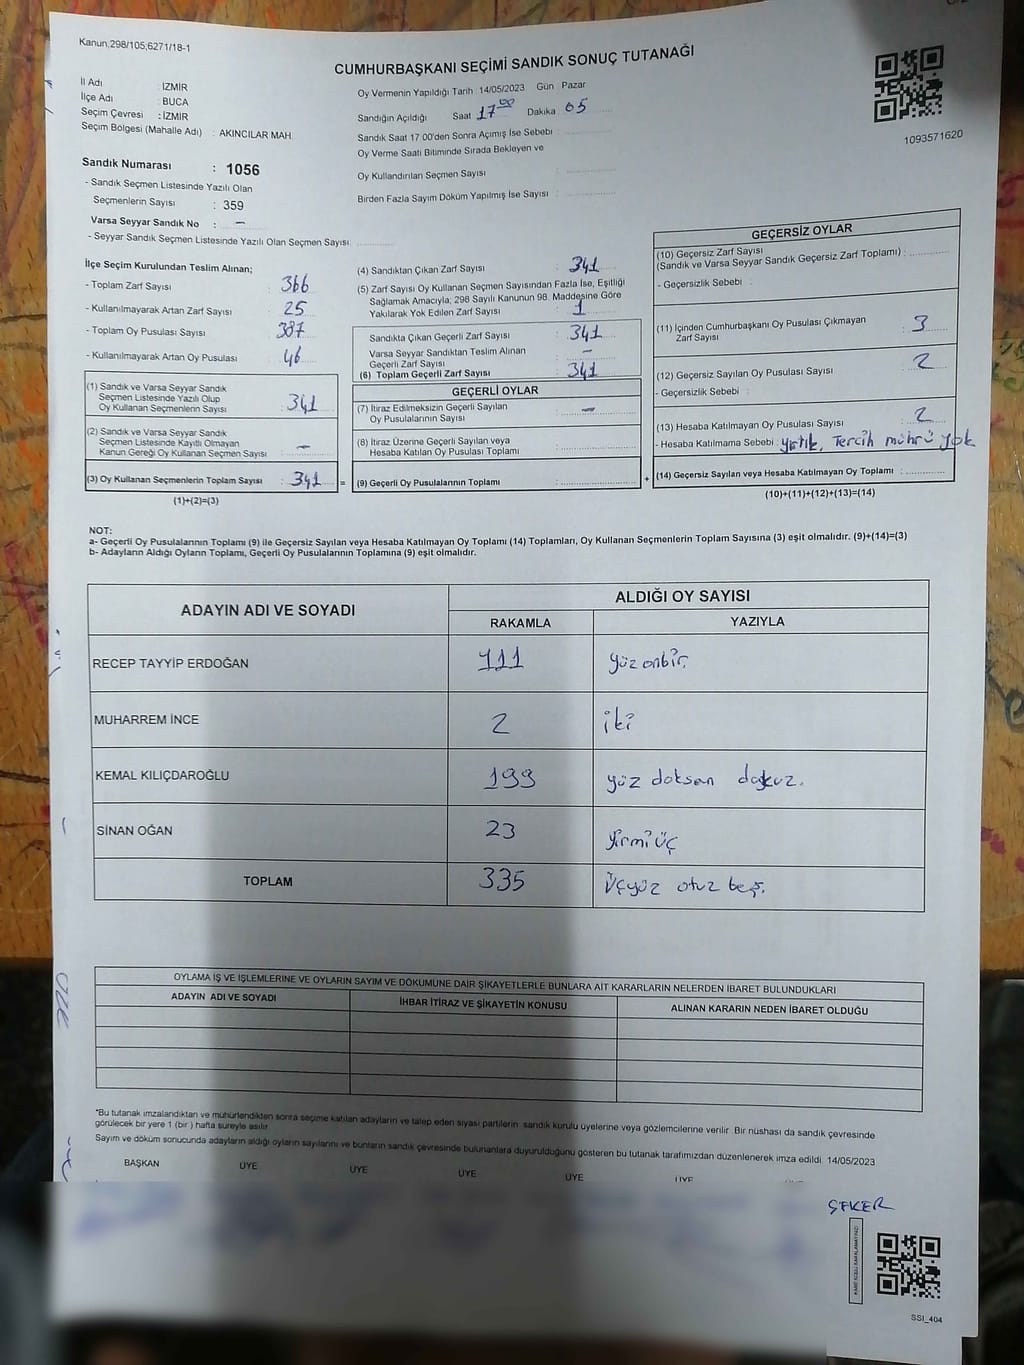 Kanun,298/105,6271/18-1
CUMHURBAŞKANI SEÇİMİ SANDIK SONUÇ TUTANAĞI
İl Adı : İZMİR
İlçe Adı : BUCA
Seçim Çevresi : İZMİR
Seçim Bölgesi (Mahalle Adı) : AKINCILAR MAH.
Oy Vermenin Yapıldığı Tarih : 14/05/2023 Gün Pazar
Sandığın Açıldığı Saat 17 00 Dakika 05
Sandık Saat 17:00'den Sonra Açımış İse Sebebi :
Oy Verme Saati Bitiminde Sırada Bekleyen ve
Oy Kullandırılan Seçmen Sayısı :
Birden Fazla Sayım Döküm Yapılmış İse Sayısı :
1093571620
Sandık Numarası : 1056
- Sandık Seçmen Listesinde Yazılı Olan
Seçmenlerin Sayısı : 359
Varsa Seyyar Sandık No : –
- Seyyar Sandık Seçmen Listesinde Yazılı Olan Seçmen Sayısı :
İlçe Seçim Kurulundan Teslim Alınan;
- Toplam Zarf Sayısı : 366
- Kullanılmayarak Artan Zarf Sayısı : 25
- Toplam Oy Pusulası Sayısı : 387
- Kullanılmayarak Artan Oy Pusulası : 46
(1) Sandık ve Varsa Seyyar Sandık
Seçmen Listesinde Yazılı Olup
Oy Kullanan Seçmenlerin Sayısı : 341
(2) Sandık ve Varsa Seyyar Sandık
Seçmen Listesinde Kayıtlı Olmayan
Kanun Gereği Oy Kullanan Seçmen Sayısı : –
(3) Oy Kullanan Seçmenlerin Toplam Sayısı : 341 =
(1)+(2)=(3)
(4) Sandıktan Çıkan Zarf Sayısı : 341
(5) Zarf Sayısı Oy Kullanan Seçmen Sayısından Fazla İse, Eşitliği
Sağlamak Amacıyla; 298 Sayılı Kanunun 98. Maddesine Göre
Yakılarak Yok Edilen Zarf Sayısı : 1
Sandıkta Çıkan Geçerli Zarf Sayısı : 341
Varsa Seyyar Sandıktan Teslim Alınan
Geçerli Zarf Sayısı : –
(6) Toplam Geçerli Zarf Sayısı : 341
GEÇERLİ OYLAR
(7) İtiraz Edilmeksizin Geçerli Sayılan
Oy Pusulalarının Sayısı : –
(8) İtiraz Üzerine Geçerli Sayılan veya
Hesaba Katılan Oy Pusulaları Toplamı :
(9) Geçerli Oy Pusulalarının Toplamı : +
GEÇERSİZ OYLAR
(10) Geçersiz Zarf Sayısı
(Sandık ve Varsa Seyyar Sandık Geçersiz Zarf Toplamı) :
- Geçersizlik Sebebi :
(11) İçinden Cumhurbaşkanı Oy Pusulası Çıkmayan
Zarf Sayısı : 3
(12) Geçersiz Sayılan Oy Pusulası Sayısı : 2
- Geçersizlik Sebebi :
(13) Hesaba Katılmayan Oy Pusulası Sayısı : 2
- Hesaba Katılmama Sebebi : yırtık, Tercih mührü yok
(14) Geçersiz Sayılan veya Hesaba Katılmayan Oy Toplamı :
(10)+(11)+(12)+(13)=(14)
NOT:
a- Geçerli Oy Pusulalarının Toplamı (9) ile Geçersiz Sayılan veya Hesaba Katılmayan Oy Toplamı (14) Toplamları, Oy Kullanan Seçmenlerin Toplam Sayısına (3) eşit olmalıdır. (9)+(14)=(3)
b- Adayların Aldığı Oyların Toplamı, Geçerli Oy Pusulalarının Toplamına (9) eşit olmalıdır.
ADAYIN ADI VE SOYADI ALDIĞI OY SAYISI
RAKAMLA YAZIYLA
RECEP TAYYİP ERDOĞAN 111 yüz onbir.
MUHARREM İNCE 2 iki
KEMAL KILIÇDAROĞLU 199 yüz doksan dokuz.
SİNAN OĞAN 23 yirmi üç
TOPLAM 335 üçyüz otuz beş.
OYLAMA İŞ VE İŞLEMLERİNE VE OYLARIN SAYIM VE DÖKÜMÜNE DAİR ŞİKAYETLERLE BUNLARA AİT KARARLARIN NELERDEN İBARET BULUNDUKLARI
ADAYIN ADI VE SOYADI İHBAR İTİRAZ VE ŞİKAYETİN KONUSU ALINAN KARARIN NEDEN İBARET OLDUĞU
*Bu tutanak imzalandıktan ve mühürlendikten sonra seçime katılan adayların ve talep eden siyasi partilerin sandık kurulu üyelerine veya gözlemcilerine verilir. Bir nüshası da sandık çevresinde
görülecek bir yere 1 (bir ) hafta süreyle asılır.
Sayım ve döküm sonucunda adayların aldığı oyların sayılarını ve bunların sandık çevresinde bulunanlara duyurulduğunu gösteren bu tutanak tarafımızdan düzenlenerek imza edildi. 14/05/2023
BAŞKAN ÜYE ÜYE ÜYE ÜYE ÜYE
ŞEKER
SSI_404